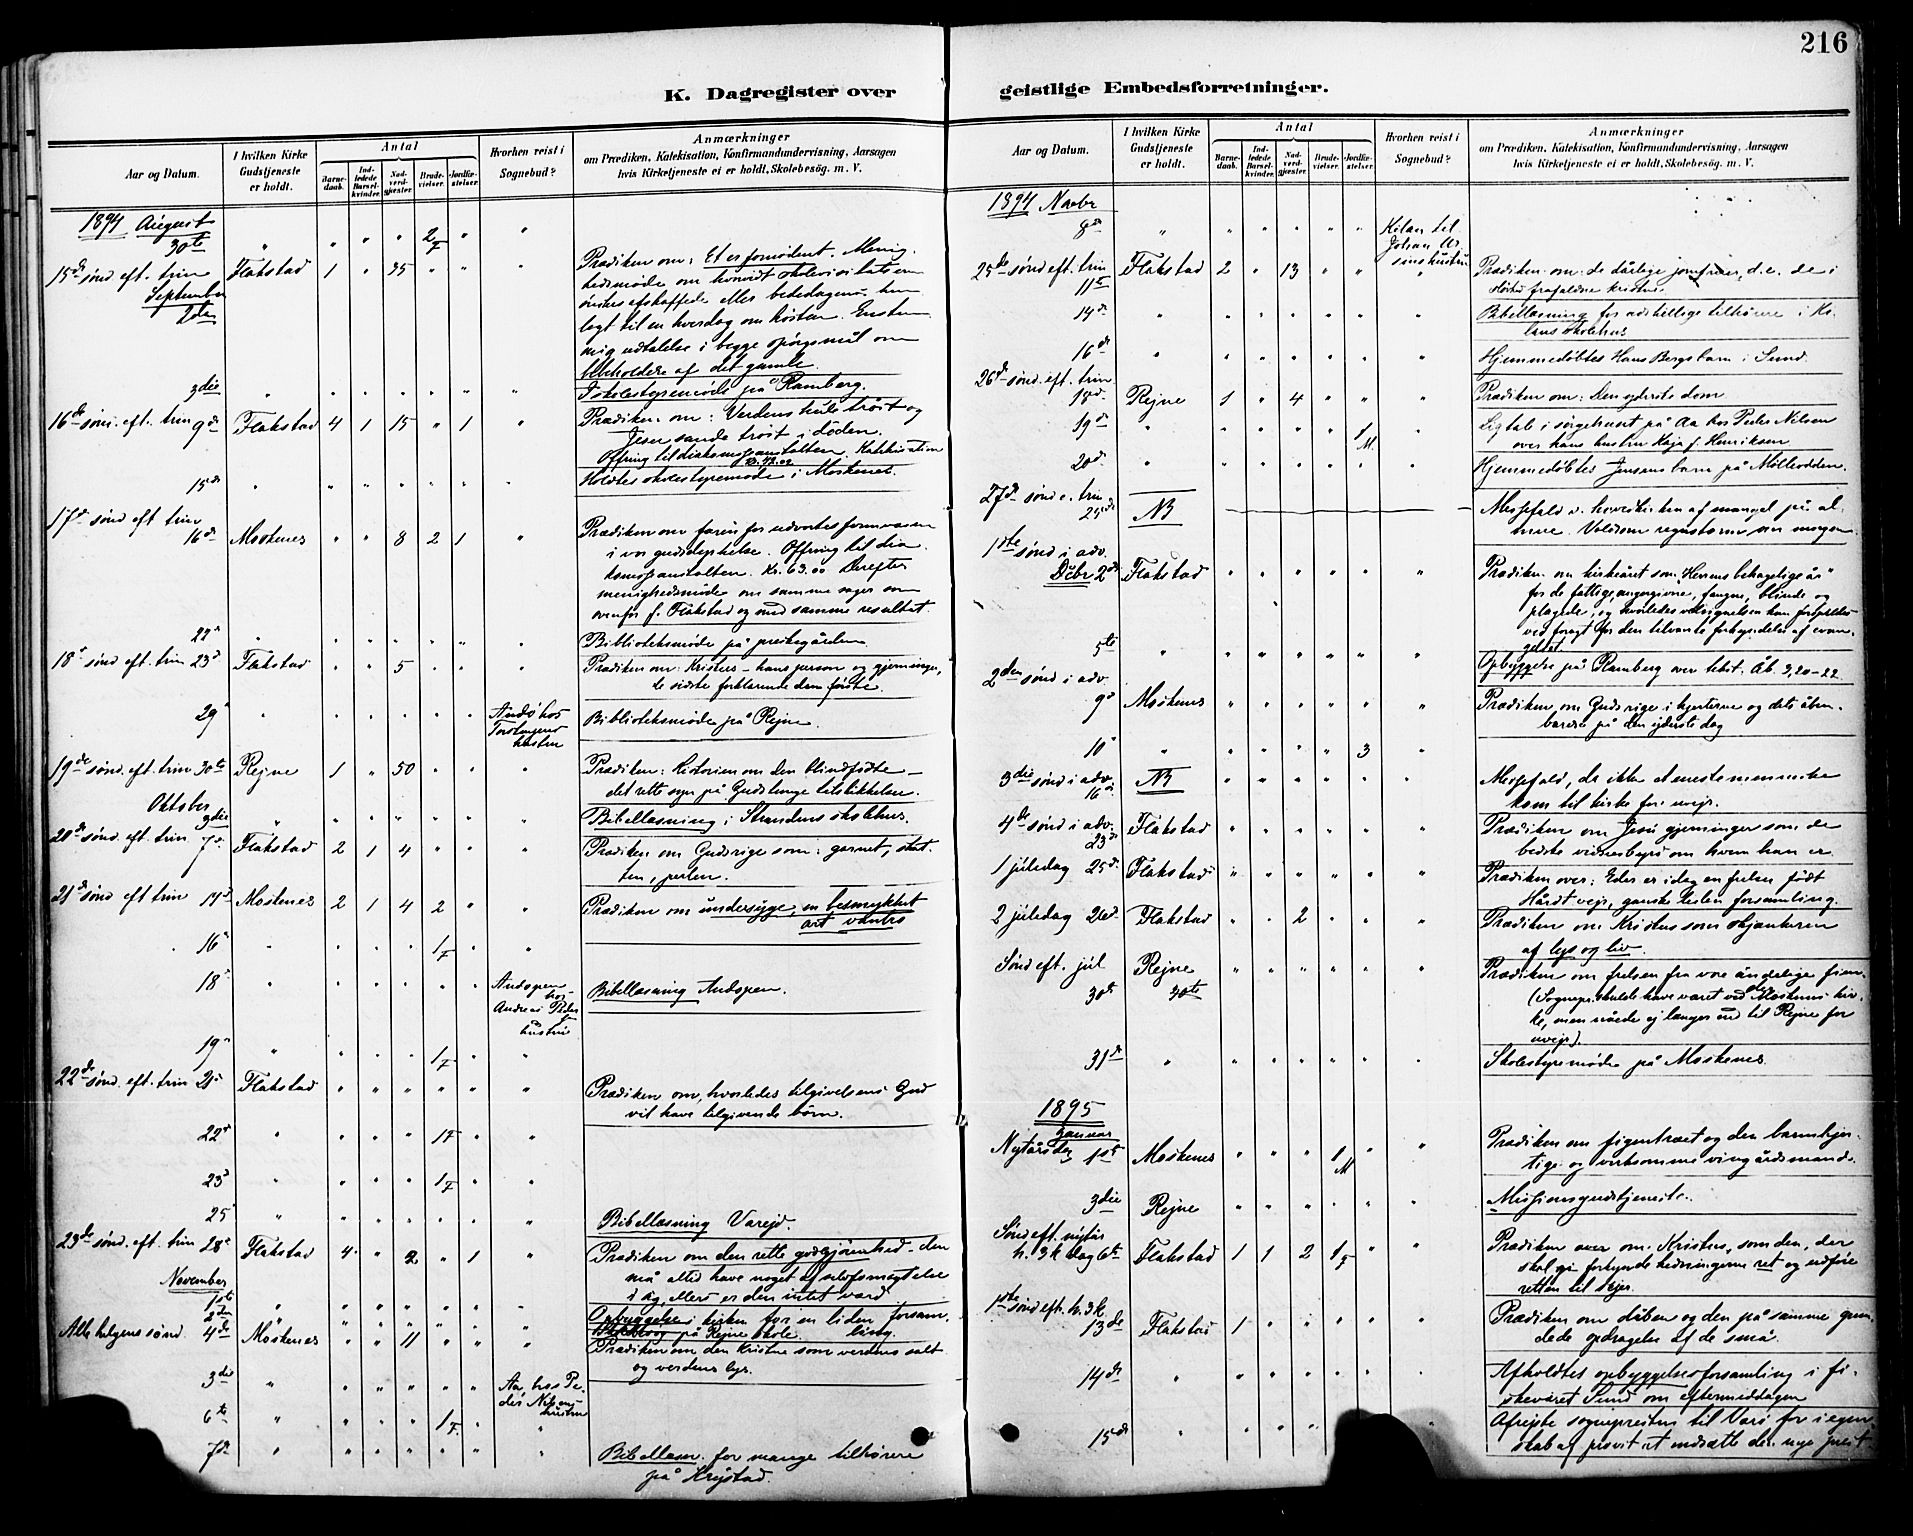 216
K. Dagregister over
geistlige Embedsforretninger.
Aar og Datum.
I hvilken Kirke Gudstjeneste er holdt.
Antal
Barnedaab.
Indledede Barselkvinder.
Nadverdgjester.
Brudevielser.
Jordfæstelser.
Hvorhen reist i Sognebud?
Anmærkninger
om Prædiken, Katekisation, Konfirmandundervisning, Aarsagen
hvis Kirketjeneste ei er holdt, Skolebesøg. m. V.
1894 August
30te " " " " 2 F " "
15de sønd eft. trin Flakstad 1 " 95 " " "
Prædiken om: Et er fornødent. Menig-
September
2den
hedsmøde om
ønskes afskaffede eller bededagens hen
lagt til en hverdag om høsten. Enstem
mig udtalelse i begge spørgsmål om
bibeholdelse af det gamle.
3die " " " " " " "
Skolestyremøde på Ramberg.
16de sønd. eft. trin 9de Flakstad 4 1 15 " 1 "
Prædiken om: Verdens hule trøst og
Jesu sande trøst i døden.
Offring til diakonissanstalten. Katekisation
Kr. 42.02
15de " " " " " " "
Holdtes skolestyremøde i Moskenes.
17de sønd eft trin
16de Moskenes " " 8 2 1 "
Prædiken om faren for udvortes formvæsen
i vor gudsdyrkelse. Offring til dia-
konissanstalten. Kr. 63.00 Derefter
menighedsmøde om samme sager som
ovenfor f. Flakstad og med samme resultat.
22d " " " " " " "
Biblioteksmøde på prestegården
18d sønd eft. trin 23d Flakstad " " 5 " " "
Prædiken om: Kristus – hans person og gjerninger,
de sidste forklarende den første.
29d " " " " " "
Andø hos
hustru
Biblioteksmøde på Rejne.
19de sønd. eft. trin 30te Rejne 1 " 50 " " "
Prædiken: Historien om den blindfødte –
det rette syn på Guds
Oktober
3die " " " " " " "
Bibellæsning i Strandens skolehus.
20de sønd. eft. trin 7d. Flakstad 2 1 4 " " "
Prædiken om Gudsrige som: garnet, skat-
ten, perlen.
21de sønd eft trin 14d Moskenes 2 1 4 2 " "
Prædiken om undersyge, en besmykket
art vantro
16d " " " " 1 F "
18d " " " " " "
Andopen
hos
Andreas Peders
hustru
Bibellæsning Andopen.
19d " " " " 1 F " "
22de sønd. eft. trin 21d Flakstad " " " " " "
Prædiken om, hvorledes tilgivelsens Gud
vil have tilgivende børn.
22d " " " " 1 F " "
23d " " " " 1 F " "
25 " " " " " " "
Bibellæsning Varejd.
23de sønd. eft. trin 28d Flakstad 4 " 2 " 1 "
Prædiken om den rette godgjørenhed – den
må altid have noget af selvfornægtelse
i sig, ellers er den intet værd
November
1ste " " " " " " "
Opbyggelse i kirken for en liden forsam-
ling
2den " " " " " " "
på Rejne skole.
Alle helgens sønd. 4de Moskenes " " 11 " " "
Prædiken om den Kristne som verdens salt
og verdens lys.
3die " " " " " "
Aa, hos Pe-
der Nilsens
hustru
6te " " " " 1 F. " "
7de " " " " " " "
Bibellæsn. for mange tilhørere
på Krystad.
Aar og Datum.
I hvilken Kirke Gudstjeneste er holdt.
Antal
Barnedaab.
Indledede Barselkvinder.
Nadverdgjester.
Brudevielser.
Jordfæstelser.
Hvorhen reist i Sognebud?
Anmærkninger
om Prædiken, Katekisation, Konfirmandundervisning, Aarsagen
hvis Kirketjeneste ei er holdt, Skolebesøg. m. V.
1894 Novbr
8de " " " " " "
Kilan til
Johan
hustru
25de sønd eft. trin Flakstad 2 " 13 " " "
11te
Prædiken om: de dårlige jomfruer, d.e. de i
frafaldne kristne.
14de " " " " " " "
Bibellæsning for adskillige tilhørere i Ki-
lans skolehus
16de " " " " " " "
Hjemmedøbtes Hans Bergs barn i Sund.
26de sønd. eft. trin
18d. Rejne 1 " 4 " " "
Prædiken om: Den yderste dom
19de " " " " " 1 M. "
Ligtale i sørgehuset på Aa hos Peder Nilsen
over hans hustru Kaja f. Henriksen
20de " " " " " " "
Hjemmedøbtes Jensens barn på Mølleodden.
27de sønd e. trin
25de NB
Messefald v. hovedkirken af mangel på al-
mue. Voldsom regnstorm om morgen
1ste sønd i adv.
Dcbr 2de Flakstad " " " " " "
Prædiken om kirkeåret som "Herrens behagelige år"
for de fattige, angergivne, fangne, blinde og
plagede, og hvorledes velsignelsen kan forspildes
ved foragt for den tilvante forkyndelse af evan-
geliet
5te " " " " " " "
Opbyggelse på Ramberg over tekst. Åb. 3,20–22
2den sønd i adv.
9d Moskenes " " " " " "
Prædiken om Gudsrige i hjerterne og dets åben-
barelse på den yderste dag
10d " " " " " 3 "
3die sønd i adv.
16d NB " " " " " "
Messefald, da ikke et eneste menneske
kom til kirke for uvejr.
4de sønd i adv.
23de Flakstad " " " " " "
Prædiken om Jesu gjerninger som de
bedste vidnesbyrd om hvem han er
1 juledag 25d. Flakstad " " " " " "
Prædiken over: Eder er idag en frelser født
Hårdt vejr, ganske liden forsamling.
2 juledag 26d. Flakstad " " 2 " " "
Prædiken om Kristus som skjænkeren
af lys og liv.
Sønd eft. jul Rejne " " " " " "
30te 30te
Prædiken om frelsen fra vore åndelige fien-
der
(Sognepr. skulde have været ved Moskenes kir-
ke, men nåede ej længer end til Rejne for
uvejr).
31de " " " " " " "
Skolestyremøde på Moskenes.
1895
Januar
Nytårsdag 1st Moskenes " " " 1 M " "
Prædiken om figentræet og den barmhjer-
tige og virksomme vingårdsmand.
3die Rejne " " " " " "
Missionsgudstjeneste.
Sønd eft. nytår
h. 3 k dag 6te Flakstad 1 1 2 1 F " "
Prædiken over om: Kristus, som den, der
skal gå forkynde hedningerne ret og udføre
retten til sejr.
1ste sønd eft. h. 3 k
13de Flakstad 1 " " " " "
Prædiken om dåben og den på samme grun-
dede opdragelse af de små.
14de " " " " " " "
Afholdtes opbyggelsesforsamling i fi-
skeværet Sund om eftermiddagen
15de " " " " "
Afrejste sognepresten til Værø for i egen-
skab af provst at indsætte den nye prest